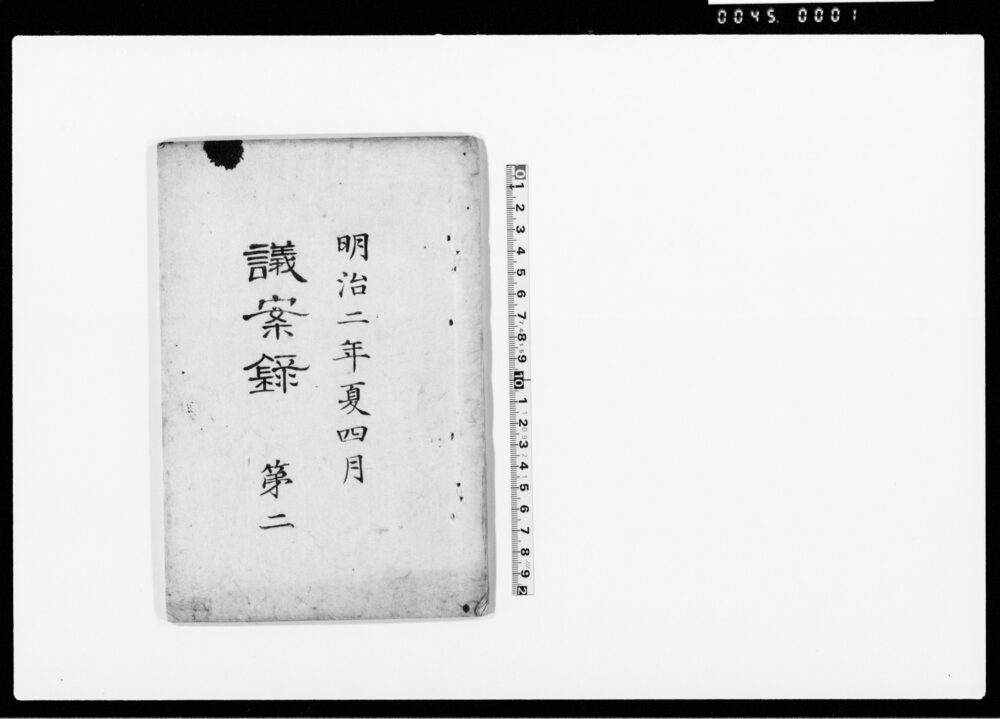 0045.0001
明治二年夏四月
議案録 第二
0 1 2 3 4 5 6 7 8 9 10 1 2 3 4 5 6 7 8 9 2